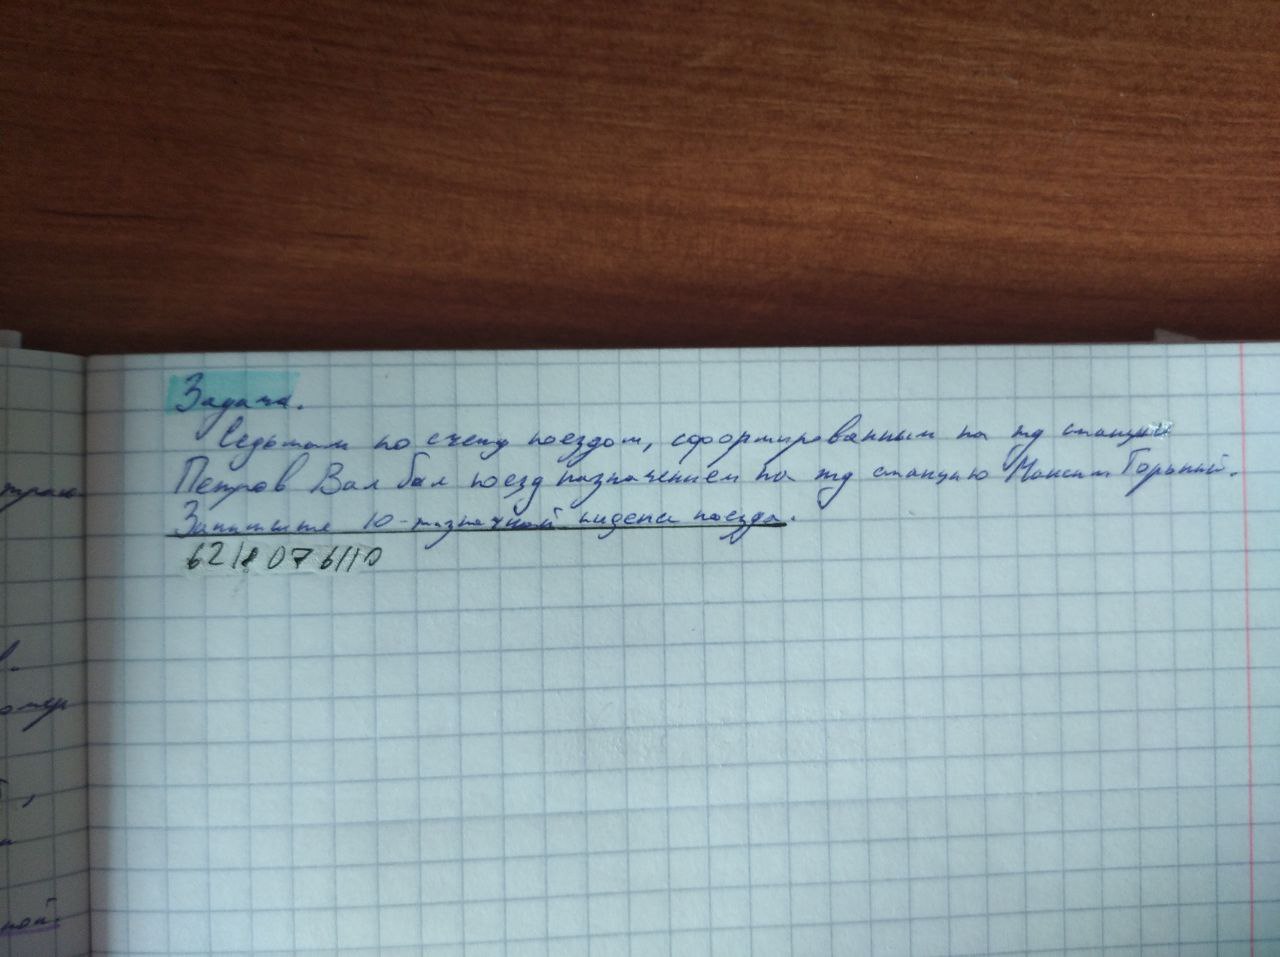 Задача.
Седьмым по счету поездом, сформированным на жд станции
Петров Вал был поезд назначением на жд станцию Максим Горький.
Запишите 10-тизначной индекс поезда.
6218076110
ной